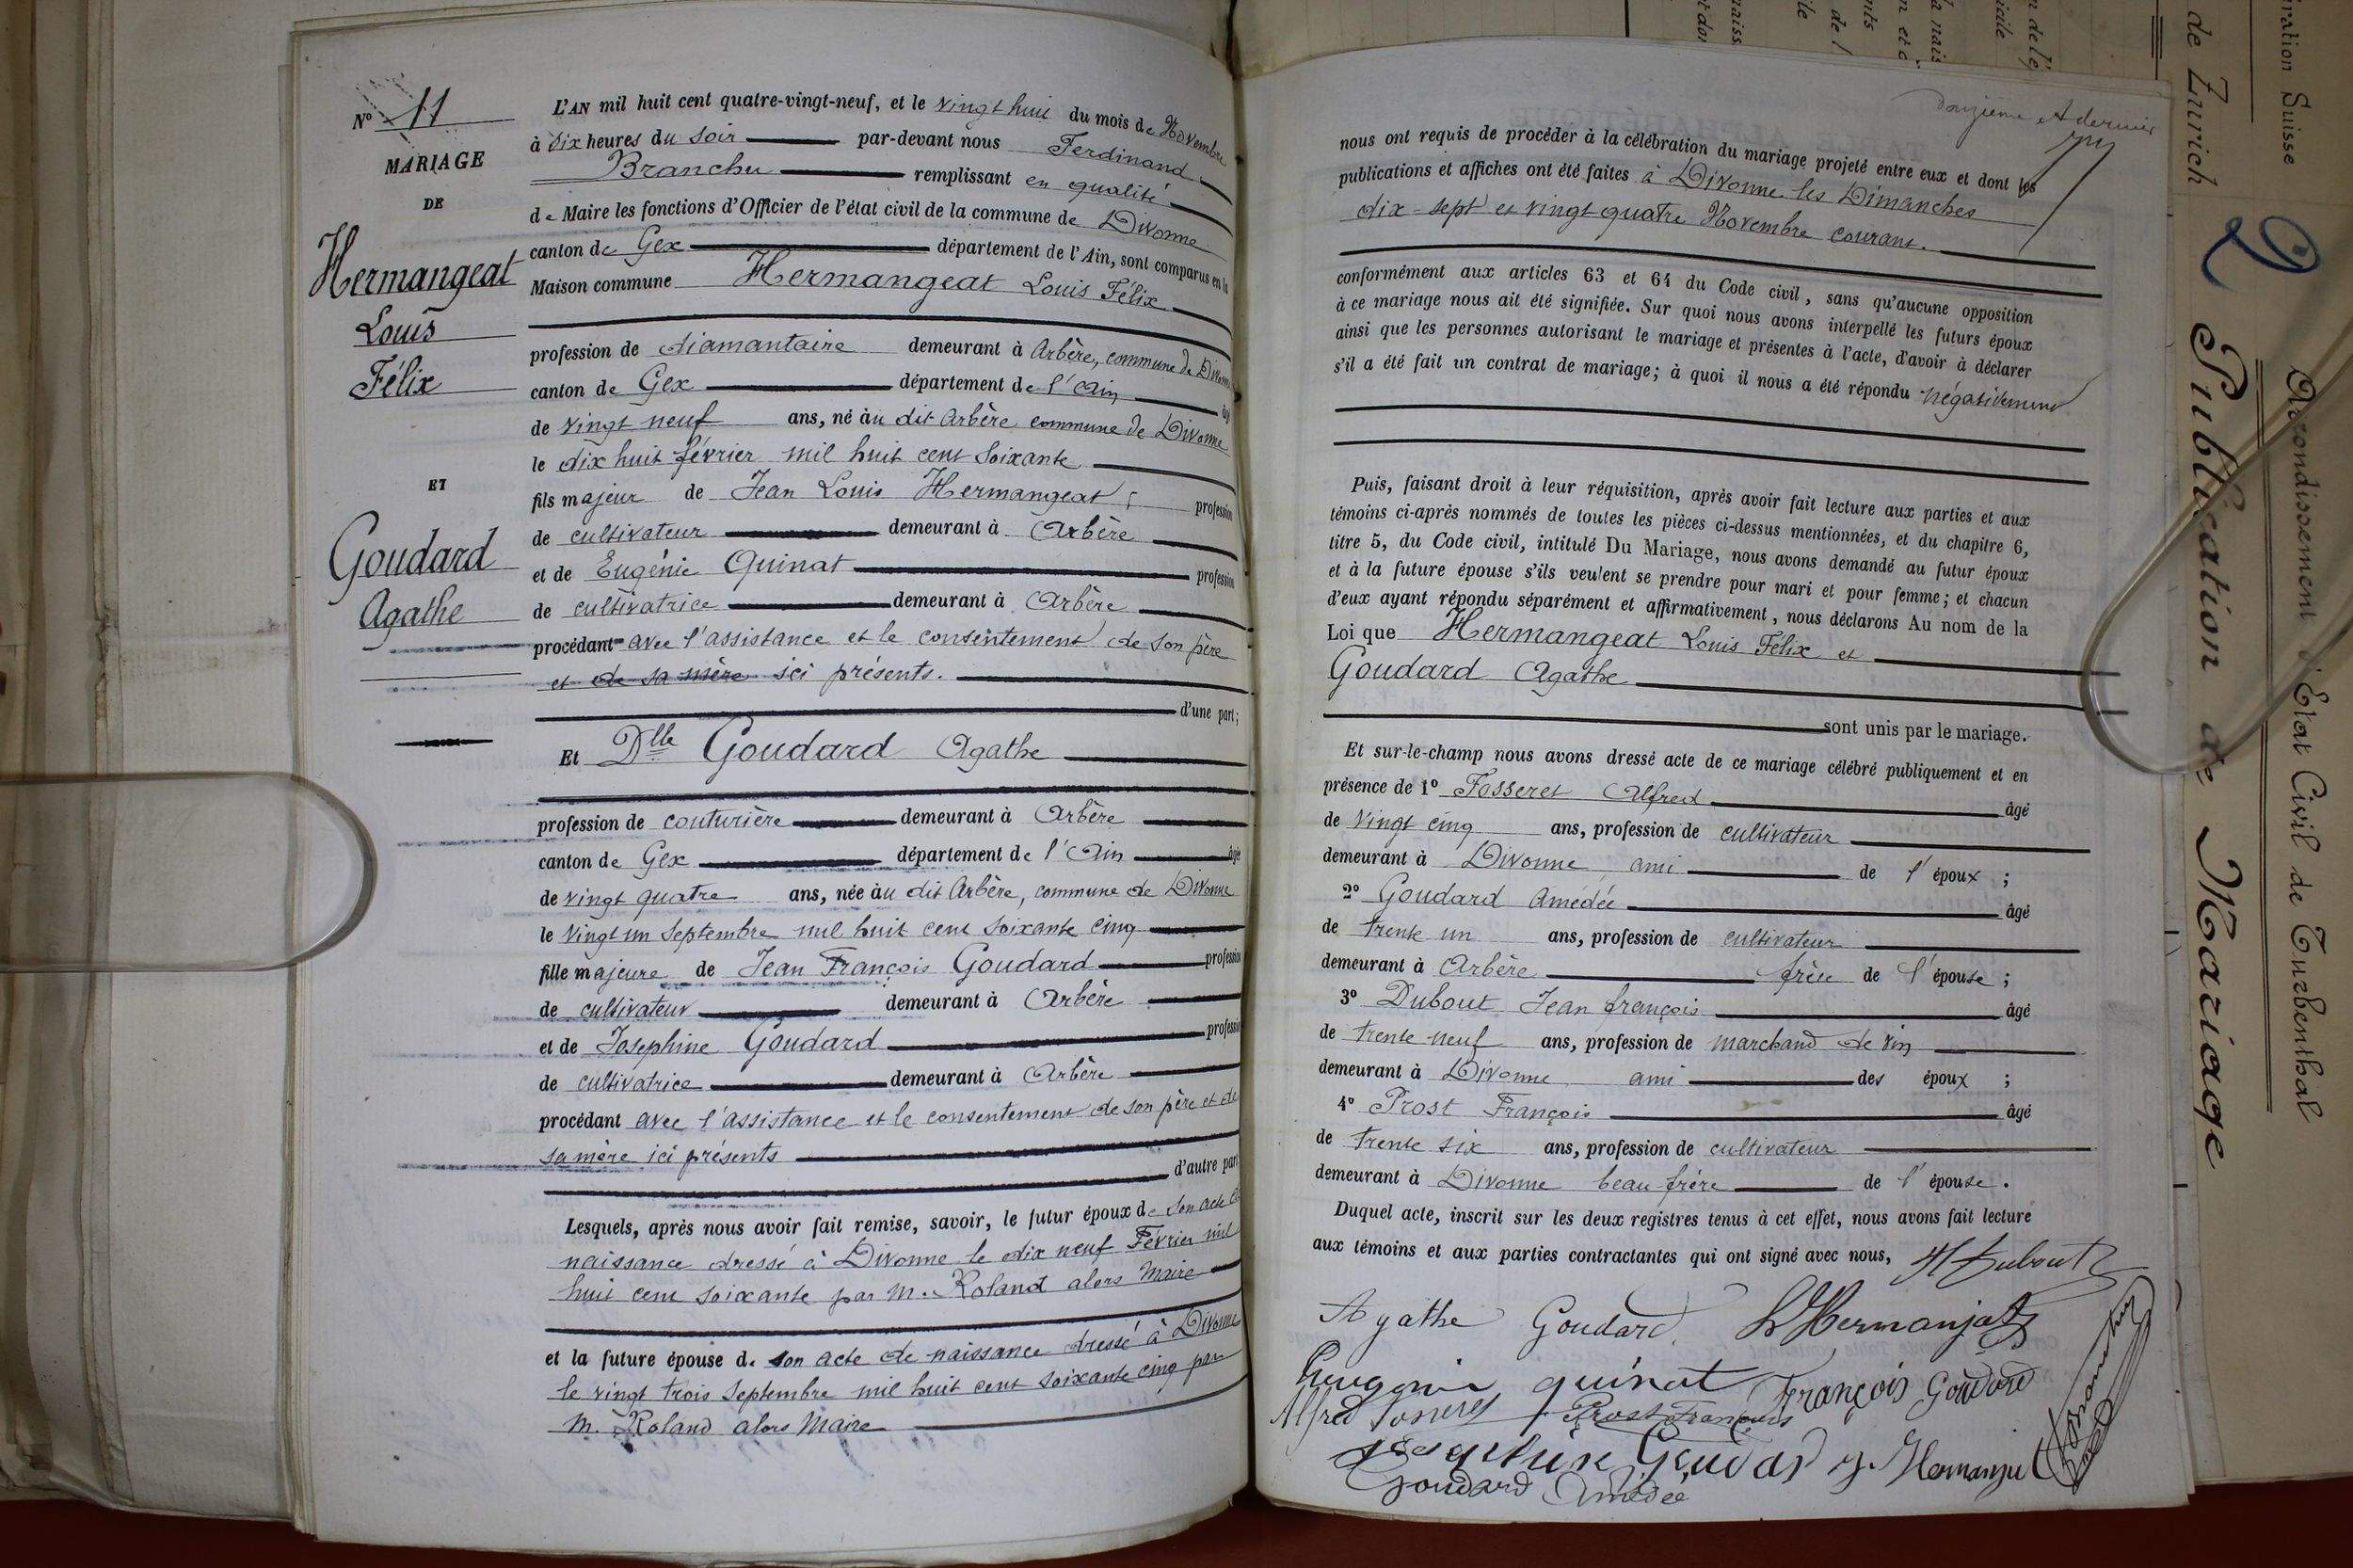 N° 11
MARIAGE
DE
Hermangeat
Louis
Félix
ET
Goudard
Agathe
L'AN mil huit cent quatre-vingt-neuf, et le vingt huit du mois de Novembre
à dix heures du soir par-devant nous Ferdinand
Branchu remplissant en qualité
de Maire les fonctions d'Officier de l'état civil de la commune de Divonne
canton de Gex département de l'Ain, sont comparus en la
Maison commune Hermangeat Louis Félix
profession de diamantaire demeurant à Arbère, commune de Divonne
canton de Gex département de l'Ain âgé
de vingt neuf ans, né au dit Arbère commune de Divonne
le dix huit février mil huit cent soixante
fils majeur de Jean Louis Hermangeat, profession
de cultivateur demeurant à Arbère
et de Eugénie Quinat profession
de cultivatrice demeurant à Arbère
procédant avec l'assistance et le consentement de son père
et de sa mère ici présents.
d'une part;
Et Dlle Goudard Agathe
profession de couturière demeurant à Arbère
canton de Gex département de l'Ain âgée
de vingt quatre ans, née au dit Arbère, commune de Divonne
le vingt un Septembre mil huit cent soixante cinq
fille majeure de Jean François Goudard profession
de cultivateur demeurant à Arbère
et de Josephine Goudard profession
de cultivatrice demeurant à Arbère
procédant avec l'assistance et le consentement de son père et de
sa mère ici présents
d'autre part
Lesquels, après nous avoir fait remise, savoir, le futur époux de son acte de
naissance dressé à Divonne le dix neuf Février mil
huit cent soixante par M. Roland alors Maire
et la future épouse de son acte de naissance dressé à Divonne
le vingt trois Septembre mil huit cent soixante cinq par
M. Roland alors Maire
Douzième et dernier
nous ont requis de procéder à la célébration du mariage projeté entre eux et dont les
publications et affiches ont été faites à Divonne les Dimanches
dix-sept et vingt quatre Novembre courant.
conformément aux articles 63 et 64 du Code civil, sans qu'aucune opposition
à ce mariage nous ait été signifiée. Sur quoi nous avons interpellé les futurs époux
ainsi que les personnes autorisant le mariage et présentes à l'acte, d'avoir à déclarer
s'il a été fait un contrat de mariage; à quoi il nous a été répondu négativement
Puis, faisant droit à leur réquisition, après avoir fait lecture aux parties et aux
témoins ci-après nommés de toutes les pièces ci-dessus mentionnées, et du chapitre 6,
titre 5, du Code civil, intitulé Du Mariage, nous avons demandé au futur époux
et à la future épouse s'ils veulent se prendre pour mari et pour femme; et chacun
d'eux ayant répondu séparément et affirmativement, nous déclarons Au nom de la
Loi que Hermangeat Louis Félix et
Goudard Agathe
sont unis par le mariage.
Et sur-le-champ nous avons dressé acte de ce mariage célébré publiquement et en
présence de 1° Fosseret Alfred âgé
de vingt cinq ans, profession de cultivateur
demeurant à Divonne ami de l'époux ;
2° Goudard Amédée âgé
de trente un ans, profession de cultivateur
demeurant à Arbère frère de l'épouse ;
3° Dubout Jean françois âgé
de trente neuf ans, profession de marchand de vin
demeurant à Divonne ami des époux ;
4° Prost François âgé
de trente six ans, profession de cultivateur
demeurant à Divonne beau-frère de l'épouse.
Duquel acte, inscrit sur les deux registres tenus à cet effet, nous avons fait lecture
aux témoins et aux parties contractantes qui ont signé avec nous, Dubout
Agathe Goudard L Hermanjat
quinat François Goudard
Alfred Prost François
Goudard J. Hermanjat
Goudard Amédée
Branchu
de Zurich
2 Publication de Mariage
Suisse
Arrondissement d'Etat Civil de Turbenthal